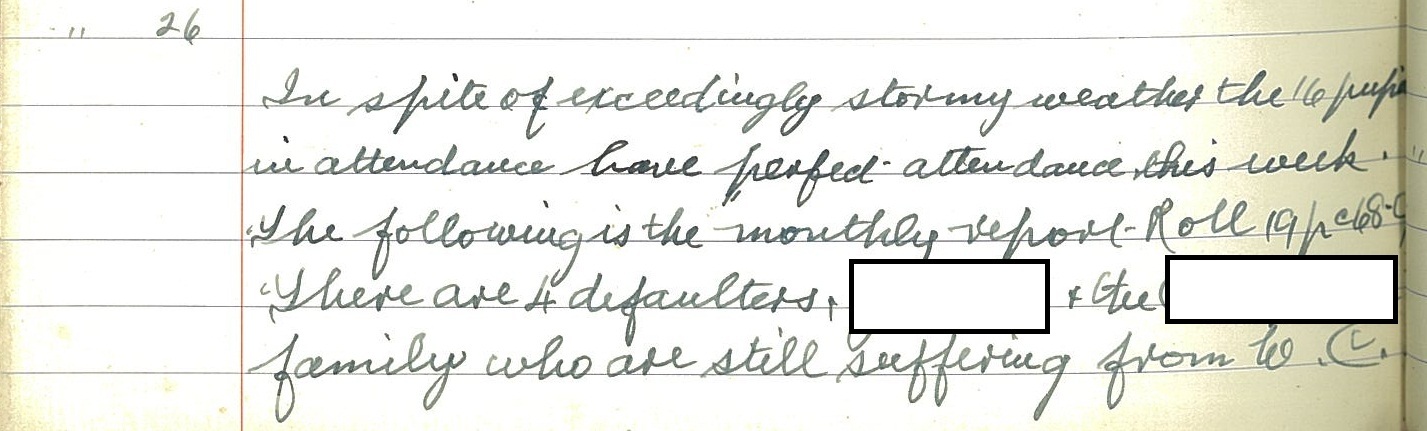 " 26
In spite of exceedingly stormy weather the 16 pupi
in attendance have perfect attendance this week.
The following is the monthly report - Roll 19 pc 68.
There are 4 defaulters, & the
family who are still suffering from W.C.